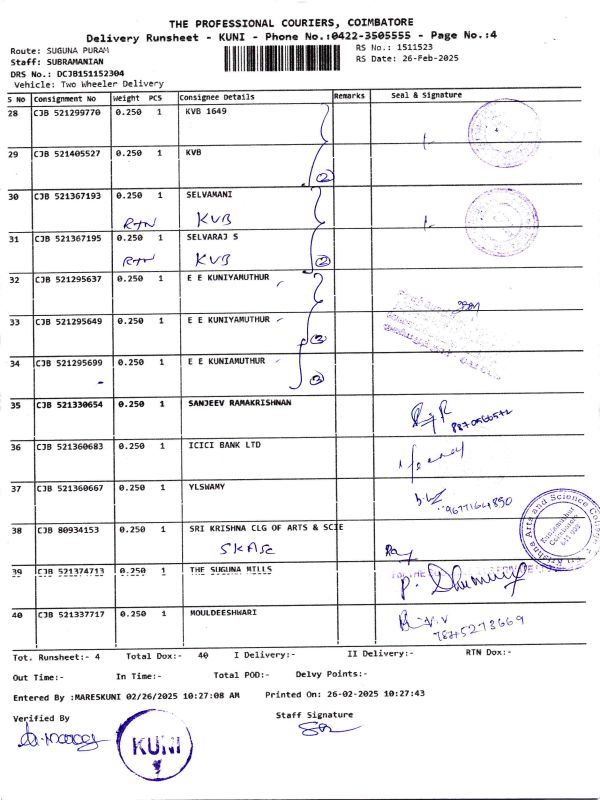 THE PROFESSIONAL COURIERS, COIMBATORE
Delivery Runsheet - KUNI - Phone No.:0422-3505555 - Page No.:4
Route: SUGUNA PURAM
RS No.: 1511523
Staff: SUBRAMANIAN
RS Date: 26-Feb-2025
DRS No.: DCJB151152304
Vehicle: Two Wheeler Delivery
S No Consignment No Weight PCS Consignee Details Remarks Seal & Signature
28 CJB 521299770 0.250 1 KVB 1649
29 CJB 521405527 0.250 1 KVB
2
30 CJB 521367193 0.250 1 SELVAMANI
RTN KVB
31 CJB 521367195 0.250 1 SELVARAJ S
RTN KVB 2
32 CJB 521295637 0.250 1 E E KUNIYAMUTHUR
33 CJB 521295649 0.250 1 E E KUNIYAMUTHUR
34 CJB 521295699 0.250 1 E E KUNIAMUTHUR
35 CJB 521330654 0.250 1 SANJEEV RAMAKRISHNAN
36 CJB 521360683 0.250 1 ICICI BANK LTD
37 CJB 521360667 0.250 1 YLSWAMY
9677164890
38 CJB 80934153 0.250 1 SRI KRISHNA CLG OF ARTS & SCIE
SKASC
39 CJB 521374713 0.250 1 THE SUGUNA MILLS
40 CJB 521337717 0.250 1 MOULDEESHWARI
7845273669
Tot. Runsheet:- 4 Total Dox:- 40 I Delivery:- II Delivery:- RTN Dox:-
Out Time:- In Time:- Total POD:- Delvy Points:-
Entered By :MARESKUNI 02/26/2025 10:27:08 AM Printed On: 26-02-2025 10:27:43
Verified By Staff Signature
KUNI